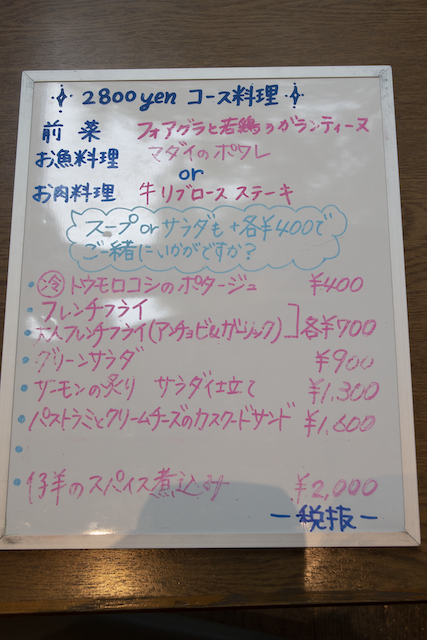 2800yen コース料理
前菜 フォアグラと若鶏のガランティーヌ
お魚料理 マダイのポワレ
or
お肉料理 牛リブロースステーキ
スープorサラダも+各¥400で
ご一緒にいかがですか?
・㊋トウモロコシのポタージュ ¥400
・フレンチフライ
・大人フレンチフライ(アンチョビ&ガーリック) 各¥700
・グリーンサラダ ¥900
・サーモンの炙り サラダ仕立て ¥1,300
・パストラミとクリームチーズのカスクードサンド ¥1,600
・仔羊のスパイス煮込み ¥2,000
ー税抜ー